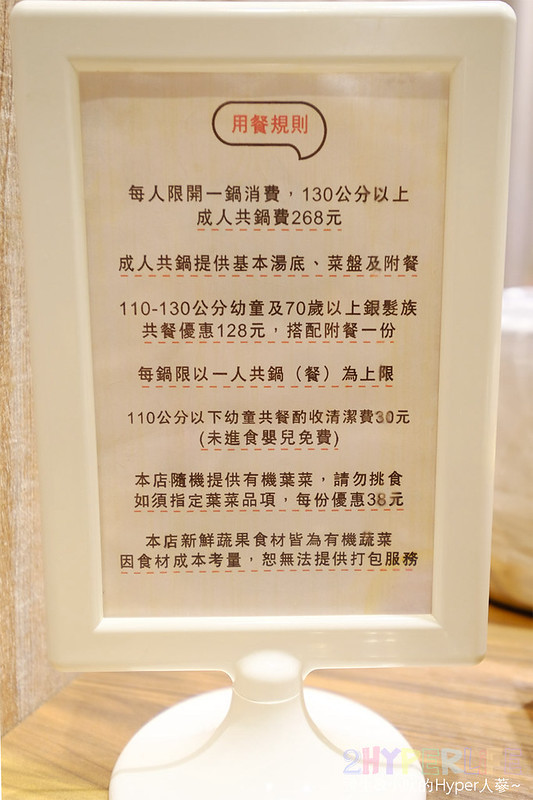 用餐規則
每人限開一鍋消費，130公分以上
成人共鍋費268元
成人共鍋提供基本湯底、菜盤及附餐
110-130公分幼童及70歲以上銀髮族
共餐優惠128元，搭配附餐一份
每鍋限以一人共鍋（餐）為上限
110公分以下幼童共餐酌收清潔費30元
(未進食嬰兒免費)
本店隨機提供有機葉菜，請勿挑食
如須指定葉菜品項，每份優惠38元
本店新鮮蔬果食材皆為有機蔬菜
因食材成本考量，恕無法提供打包服務
的Hyper人蔘~